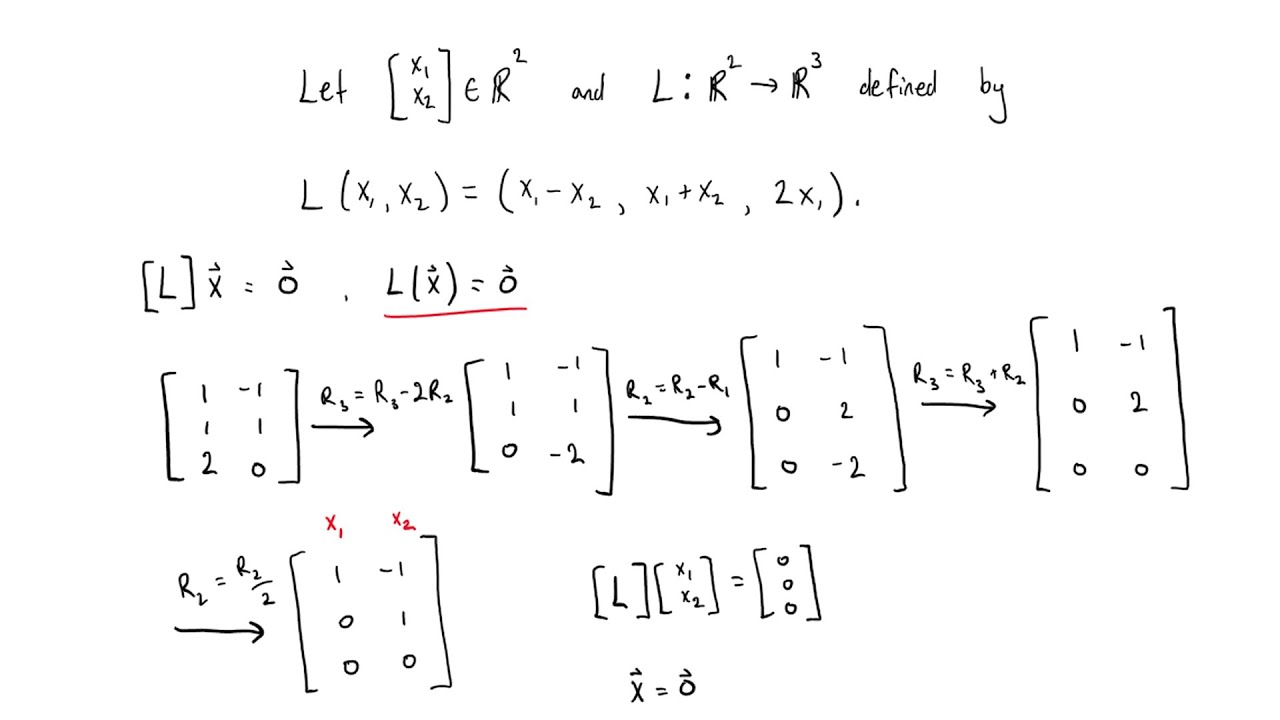 Let [x₁ x₂] ∈ ℝ² and L : ℝ² → ℝ³ defined by
L (x₁, x₂) = (x₁ - x₂ , x₁ + x₂ , 2x₁).
[L] x⃗ = 0⃗ , L(x⃗) = 0⃗
[1 -1; 1 1; 2 0] R₃ = R₃ - 2R₂ → [1 -1; 1 1; 0 -2] R₂ = R₂ - R₁ → [1 -1; 0 2; 0 -2] R₃ = R₃ + R₂ → [1 -1; 0 2; 0 0]
x₁ x₂
R₂ = R₂/2 → [1 -1; 0 1; 0 0] [L][x₁ x₂] = [0 0 0]
x⃗ = 0⃗